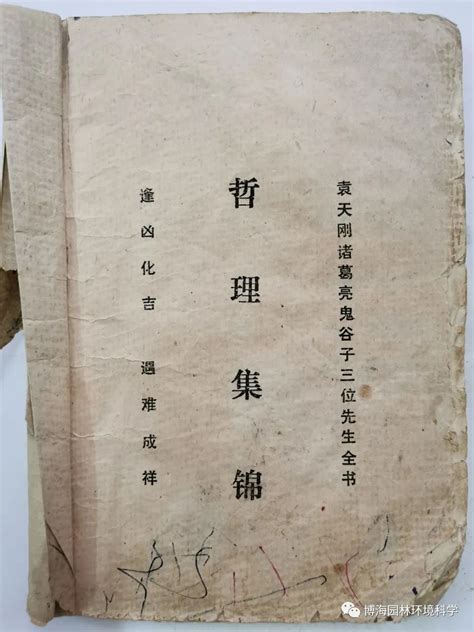 袁天刚诸葛亮鬼谷子三位先生全书
哲理集锦
逢凶化吉 遇难成祥
博海园林环境科学